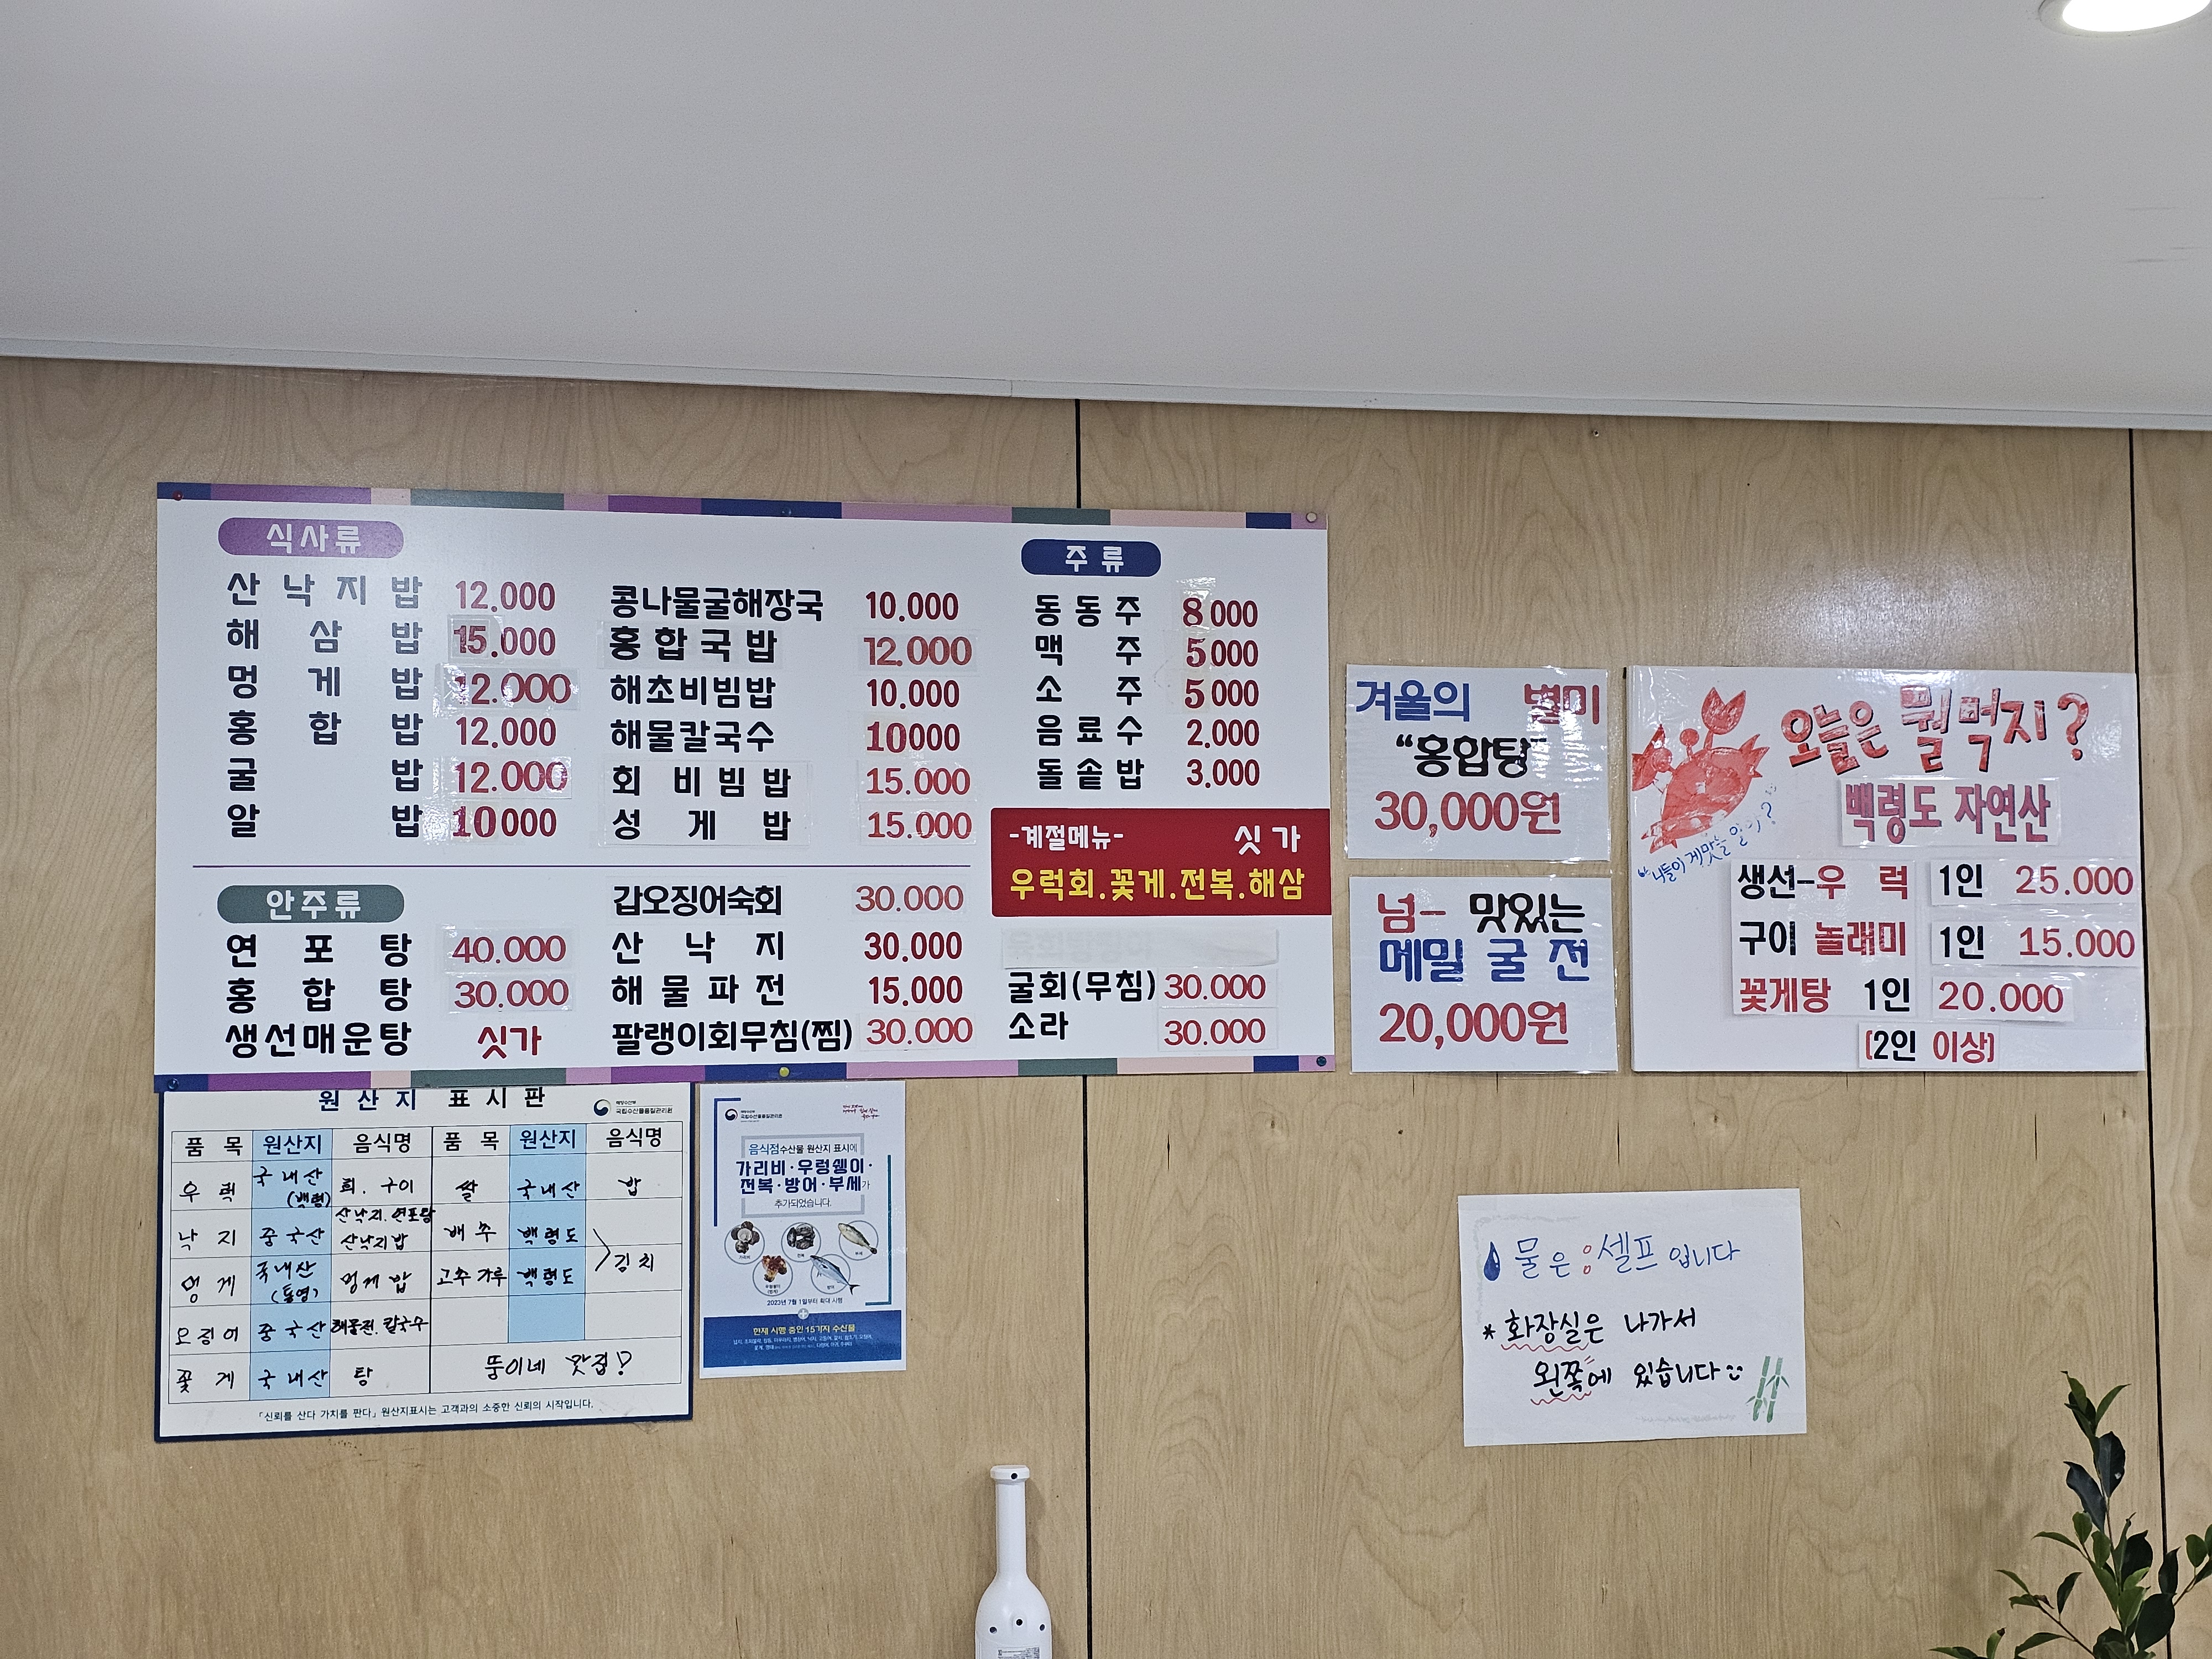 식사류
산낙지밥 12.000
해삼밥 15.000
멍게밥 12.000
홍합밥 12.000
굴밥 12.000
알밥 10000
콩나물굴해장국 10.000
홍합국밥 12.000
해초비빔밥 10.000
해물칼국수 10000
회비빔밥 15.000
성게밥 15.000
주류
동동주 8000
맥주 5000
소주 5000
음료수 2.000
돌솥밥 3.000
-계절메뉴- 싯가
우럭회.꽃게.전복.해삼
안주류
연포탕 40.000
홍합탕 30.000
생선매운탕 싯가
갑오징어숙회 30.000
산낙지 30.000
해물파전 15.000
팔랭이회무침(찜) 30.000
굴회(무침) 30.000
소라 30.000
겨울의 별미
"홍합탕"
30,000원
넘- 맛있는
메밀 굴 전
20,000원
오늘은 뭘먹지?
백령도 자연산
생선-우럭 1인 25.000
구이 놀래미 1인 15.000
꽃게탕 1인 20.000
(2인 이상)
원산지 표시판
해양수산부
국립수산물품질관리원
품목 원산지 음식명 품목 원산지 음식명
우럭 국내산(백령) 회. 구이 쌀 국내산 밥
낙지 중국산 산낙지.연포탕 산낙지밥 배추 백령도 김치
멍게 국내산(통영) 멍게밥 고추가루 백령도
오징어 중국산 해물전.칼국수
꽃게 국내산 탕 뚱이네 맛집!
「신뢰를 산다 가치를 판다」 원산지표시는 고객과의 소중한 신뢰의 시작입니다.
음식점수산물 원산지 표시에
가리비·우렁쉥이·
전복·방어·부세가
추가되었습니다.
2023년 7월 1일부터 확대 시행
현재 시행 중인 15가지 수산물
물은 셀프입니다
*화장실은 나가서
왼쪽에 있습니다